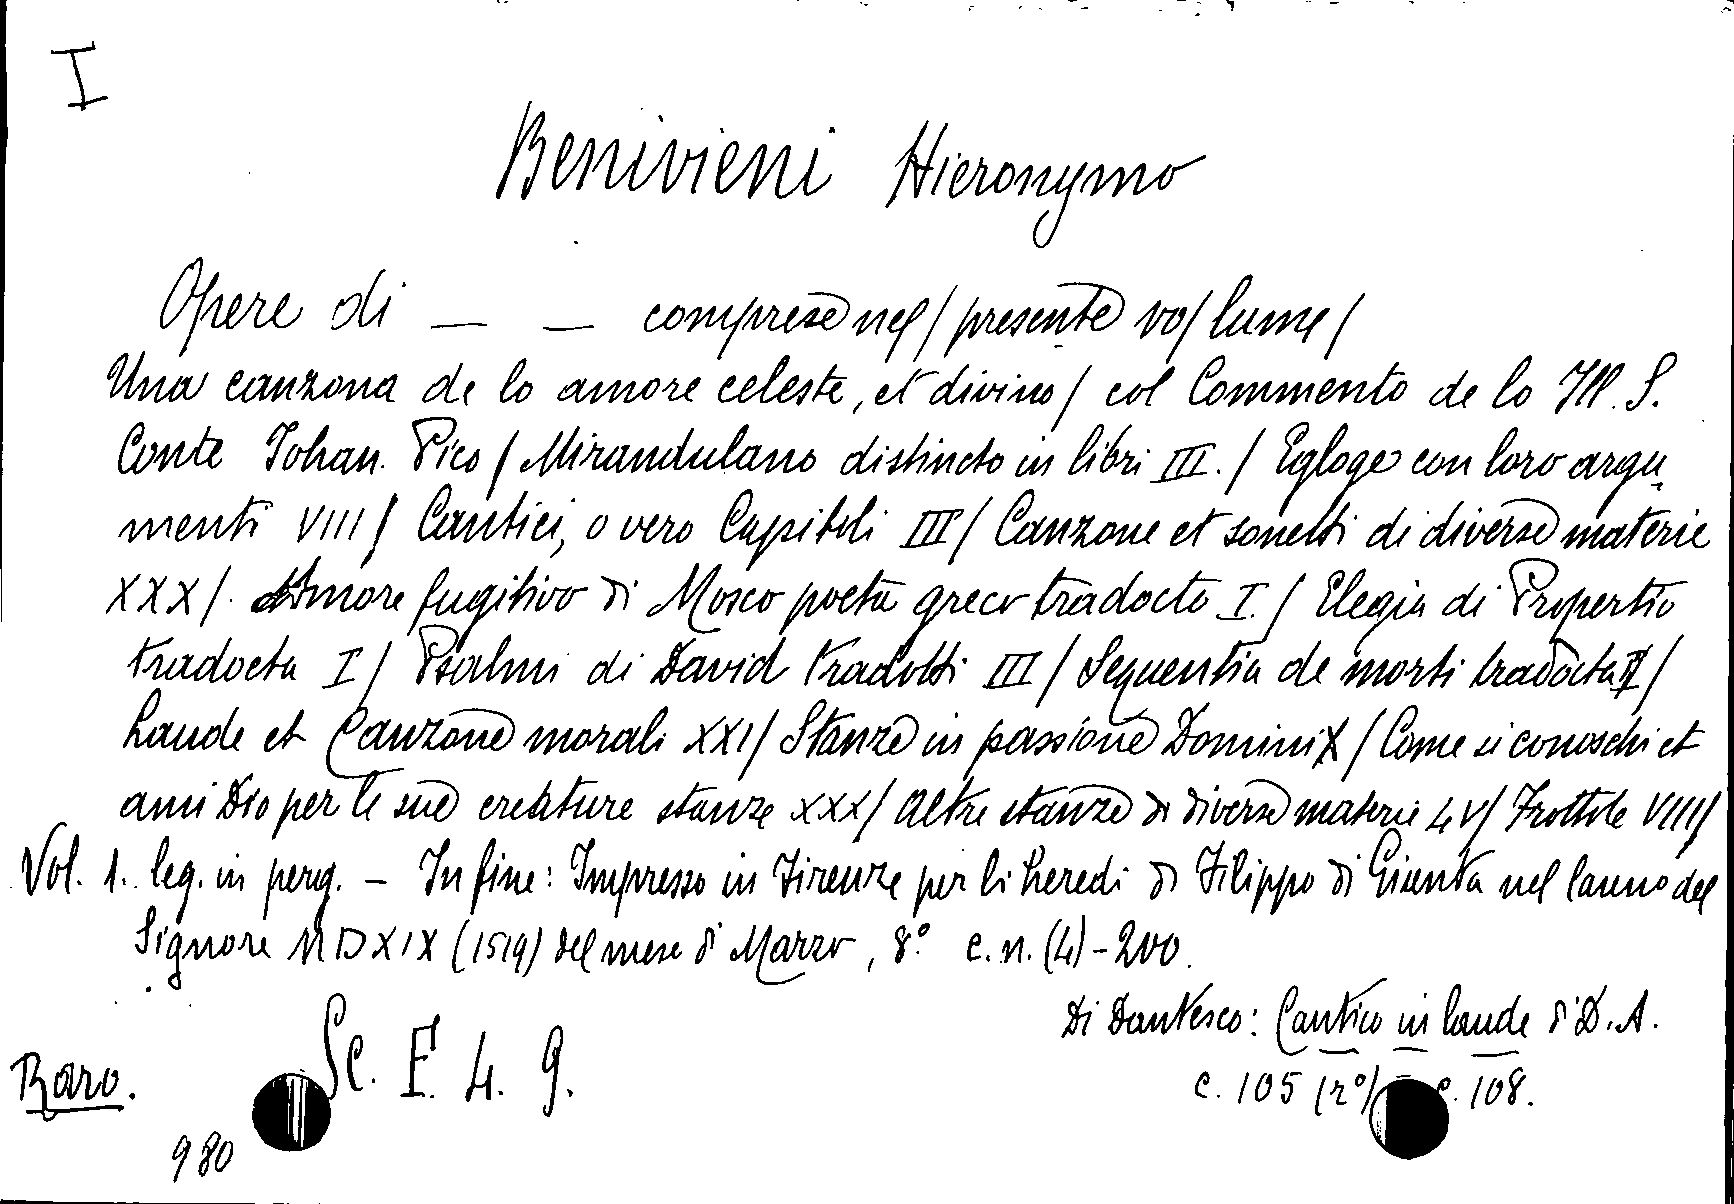 I
Benivieni Hieronymo
Opere di — — comprese nel / presente vo/lume /
Una canzona de lo amore celeste, et divino / col Commento de lo Ill. S.
Conte Johan. Pico / Mirandulano distincto in libri III. / Egloge con loro argu-
menti VIII / Cantici, o vero Capitoli III / Canzone et sonetti di diverse materie
XXX /. Amore fugitivo di Mosco poeta greco tradocto I. / Elegia di Propertio
tradocta I / Psalmi di David tradotti III / Sequentia de morti tradocta I /
Laude et Canzone morali XXI / Stanze in passione Domini X / Come si conoschi et
ami Dio per le sue creature stanze XXX / Altre stanze di diverse materie LV / Frottole VIII /
Vol. 1. leg. in perg. – In fine: Impresso in Firenze per li heredi di Filippo di Giunta nel lanno del
Signore MDXIX (1519) del mese di Marzo, 8° c. n. (4)-200.
Di Dantesco: Cantico in laude di D. A.
c. 105 (r°) – c. 108.
Sc. F. 4. 9.
Raro.
980